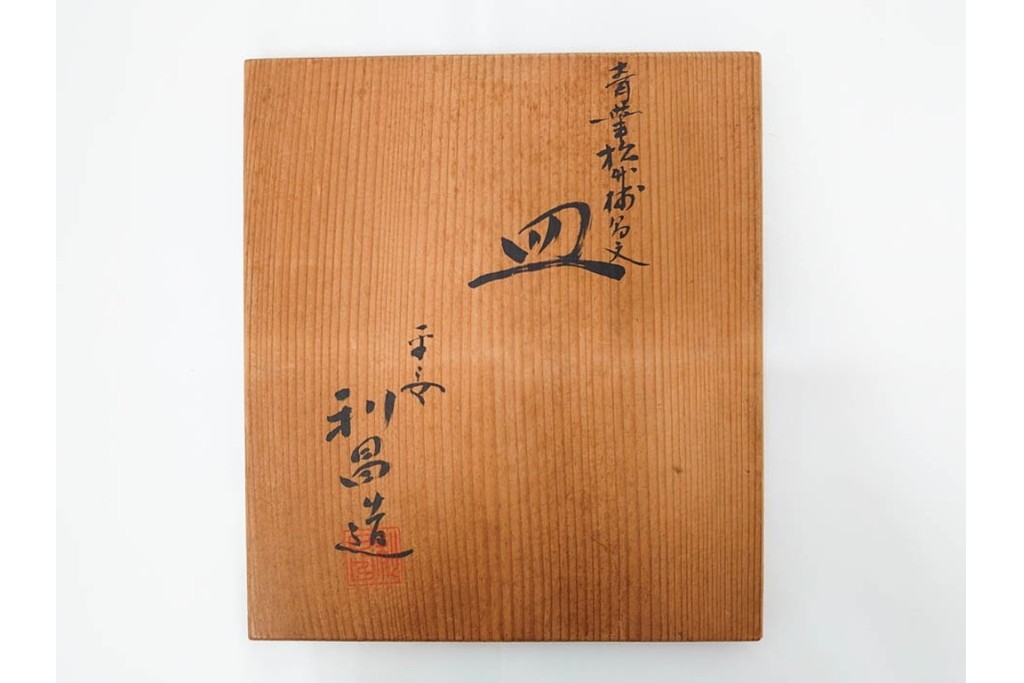 青華松竹梅文
皿
平安
利昌造